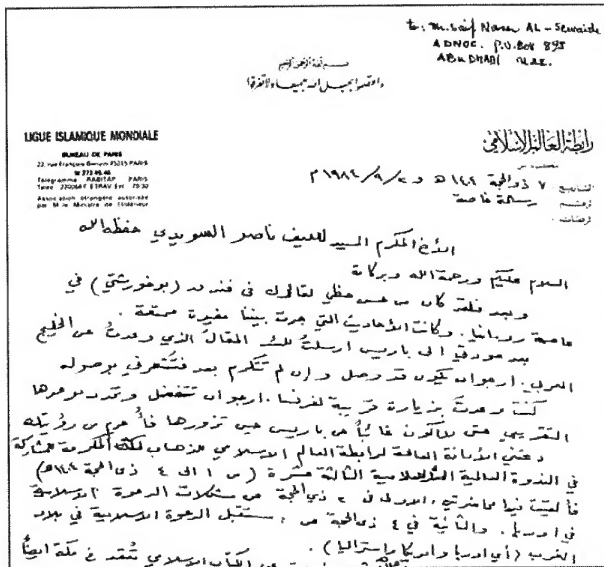 to: M. Saif Naser AL-Sewaidi
ADNOC. P.O.Box 898
ABu DHABI U.A.E.
بسم الله الرحمن الرحيم
واعتصموا بحبل الله جميعا ولا تفرقوا
LIGUE ISLAMIQUE MONDIALE
BUREAU DE PARIS
22, rue François Bonvin 75015 PARIS
Télégramme RABITAP PARIS
Association étrangère autorisée
par M le Ministre de l'Intérieur
رابطة العالم الإسلامي
مكتب باريس
التاريخ ٧ ذو الحجة ١٤٠٤ هـ و ٢/٩/١٩٨٤ م
رسالة خاصة
الأخ المكرم السيد سيف ناصر السويدي حفظه الله
السلام عليكم ورحمة الله وبركاته
وبعد فلقد كان من حسن حظي لقاؤك في فندق (بوخورشتي) في
عاصمة رومانيا. وكانت الأحاديث التي جرت بيننا مفيدة ممتعة.
بعد عودتي الى باريس ارسلت لك المقال الذي وعدت عن الخليج
العربي. ارجو ان يكون قد وصل وإن لم تتكرم بعد فتشعرني بوصوله
كنت وعدت بزيارة قريبة لفرنسا. ارجو ان تتفضل وتحدد موعدها
التقريبي حتى لا أكون غائباً عن باريس حين تزورها فأحرم من رؤيتك
دعتني الأمانة العامة لرابطة العالم الاسلامي للذهاب لمكة المكرمة للمشاركة
في الندوة العالمية الاسلامية الثالثة عشرة (من ١ الى ٤ ذي الحجة ١٤٠٤هـ)
فألقيت فيها محاضرتي، الاولى في ٢ ذي الحجة عن مشكلات الدعوة الاسلامية
في اوربا. والثانية في ٤ ذي الحجة عن: مستقبل الدعوة الاسلامية في بلاد
الغرب (أي اوربا وامريكا واستراليا).
عن الكتاب الاسلامي تنعقد في مكة ايضاً